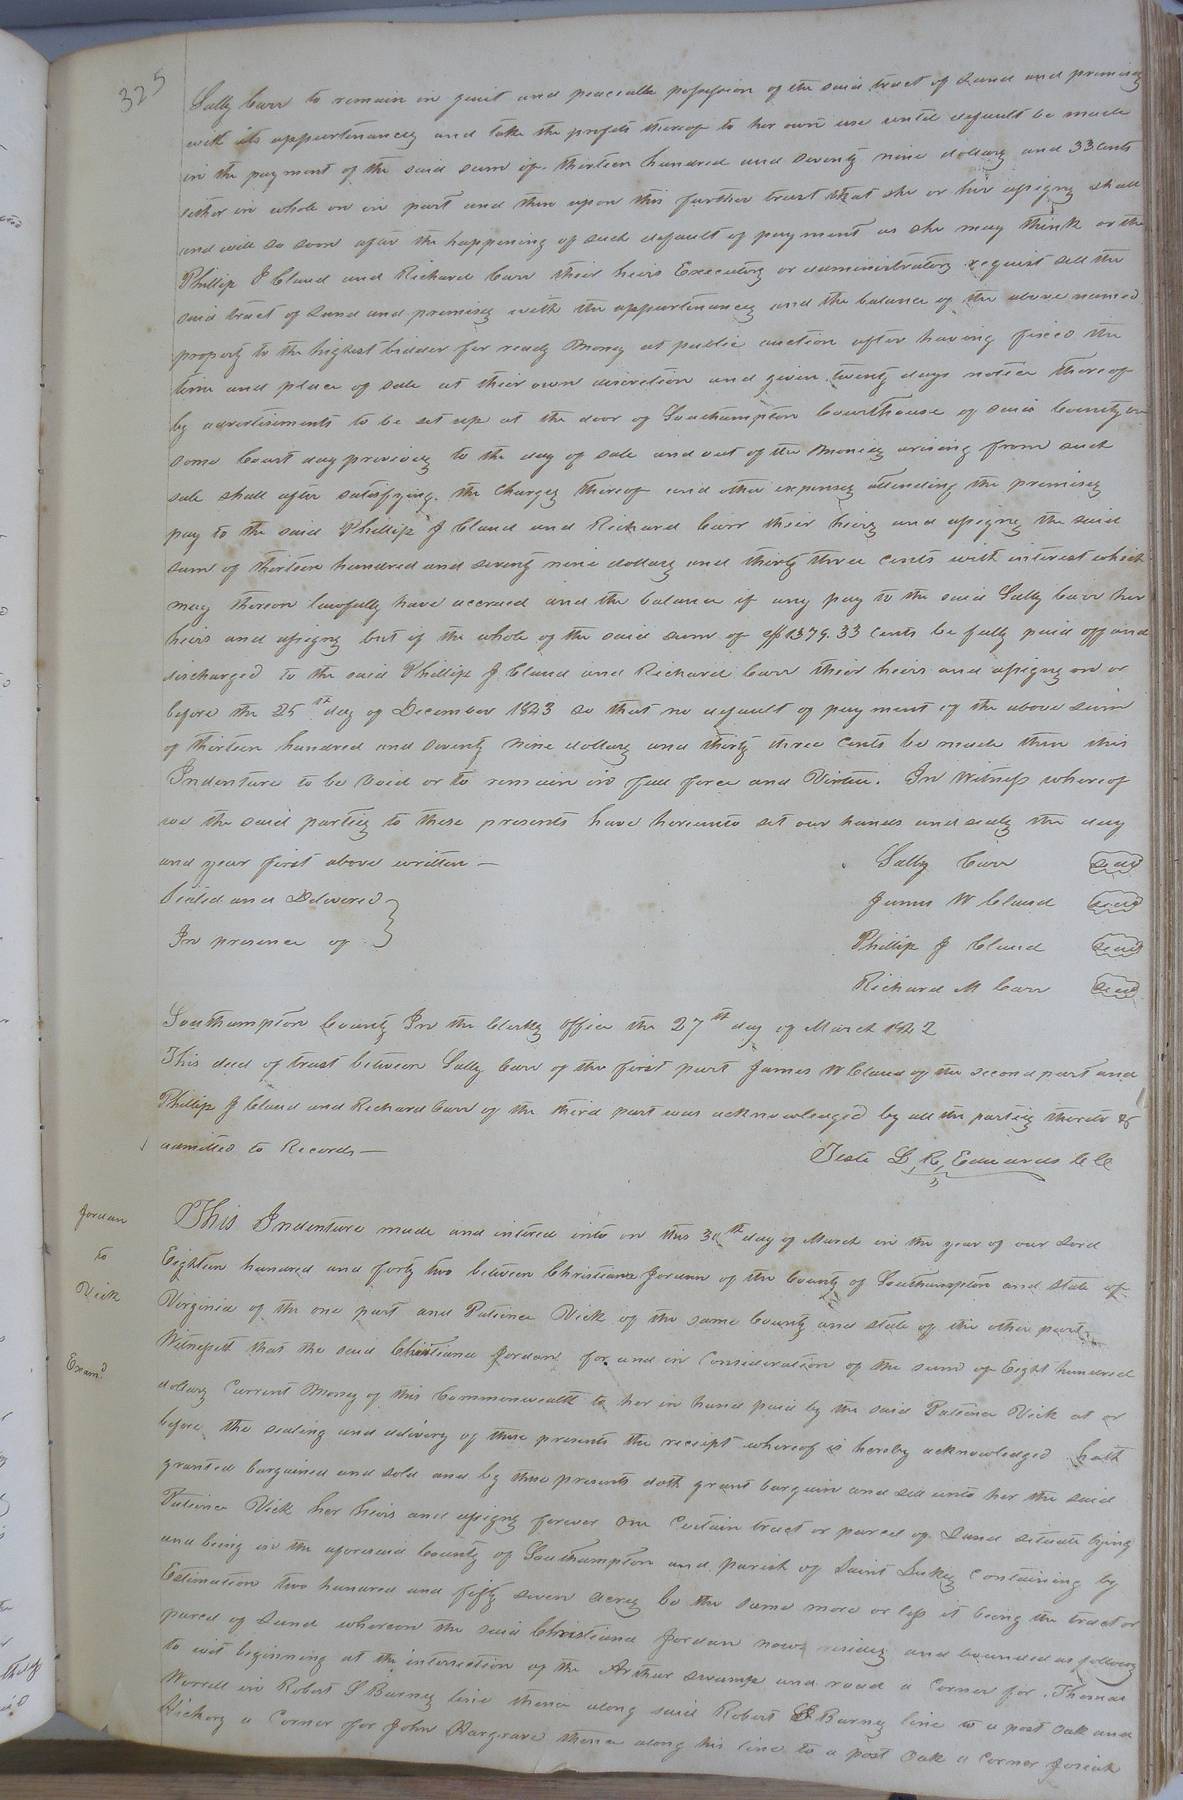 325
Sally Carr to remain in quiet and peaceable possession of the said tract of Land and premises
with its appurtenances and take the profits thereof to her own use until default be made
in the payment of the said sum of thirteen hundred and seventy nine dollars and 33 cents
either in whole or in part and then upon this further trust that she or her assigns shall
and will so soon after the happening of such default of payment as she may think or the
Phillip J Claud and Richard Carr their heirs Executors or administrators request sell the
said tract of Land and premises with the appurtenances and the balance of the above named
property to the highest bidder for ready Money at public auction after having fixed the
time and place of sale at their own discretion and given twenty days notice thereof
by advertisements to be set up at the door of Southampton Courthouse of said County on
some Court day previous to the day of sale and out of the Monies arising from such
sale shall after satisfying the Charges thereof and other expenses attending the premises
pay to the said Phillip J Claud and Richard Carr their heirs and assigns the said
sum of thirteen hundred and seventy nine dollars and thirty three cents with interest which
may thereon lawfully have accrued and the balance if any pay to the said Sally Carr her
heirs and assigns but if the whole of the said sum of $1379.33 cents be fully paid off and
discharged to the said Phillip J Claud and Richard Carr their heirs and assigns on or
before the 25th day of December 1843 so that no default of payment of the above sum
of thirteen hundred and seventy nine dollars and thirty three cents be made then this
Indenture to be void or to remain in full force and Virtue. In Witness whereof
we the said parties to these presents have hereunto set our hands and seals the day
and year first above written — Sally Carr seal
Sealed and Delivered } James W Claud seal
In presence of } Phillip J Claud seal
Richard M Carr seal
Southampton County In the Clerks office the 27th day of March 1842
This deed of trust between Sally Carr of the first part James W Claud of the second part and
Phillip J Claud and Richard Carr of the third part was acknowledged by all the parties thereto &
admitted to Records — Teste L. R. Edwards CC
Jordan
to
Vick
Examd
This Indenture made and entered into on this 30th day of March in the year of our Lord
Eighteen hundred and forty two between Christiana Jordan of the County of Southampton and state of
Virginia of the one part and Patience Vick of the same County and state of the other part
Witnesseth that the said Christiana Jordan for and in Consideration of the sum of Eight hundred
dollars Current Money of this Commonwealth to her in hand paid by the said Patience Vick at or
before the sealing and delivery of these presents the receipt whereof is hereby acknowledged hath
granted bargained and sold and by these presents doth grant bargain and sell unto her the said
Patience Vick her heirs and assigns forever one Certain tract or parcel of Land situate lying
and being in the aforesaid County of Southampton and parish of Saint Lukes Containing by
Estimation two hundred and fifty seven acres be the same more or less it being the tract or
parcel of Land whereon the said Christiana Jordan now resides and bounded as follows
to wit beginning at the intersection of the Arthur swamp and road a Corner for Thomas
Worrell in Robert S Barnes line thence along said Robert S Barnes line to a post Oak and
Hickory a Corner for John Hargrave thence along his line to a post Oak a Corner Josiah